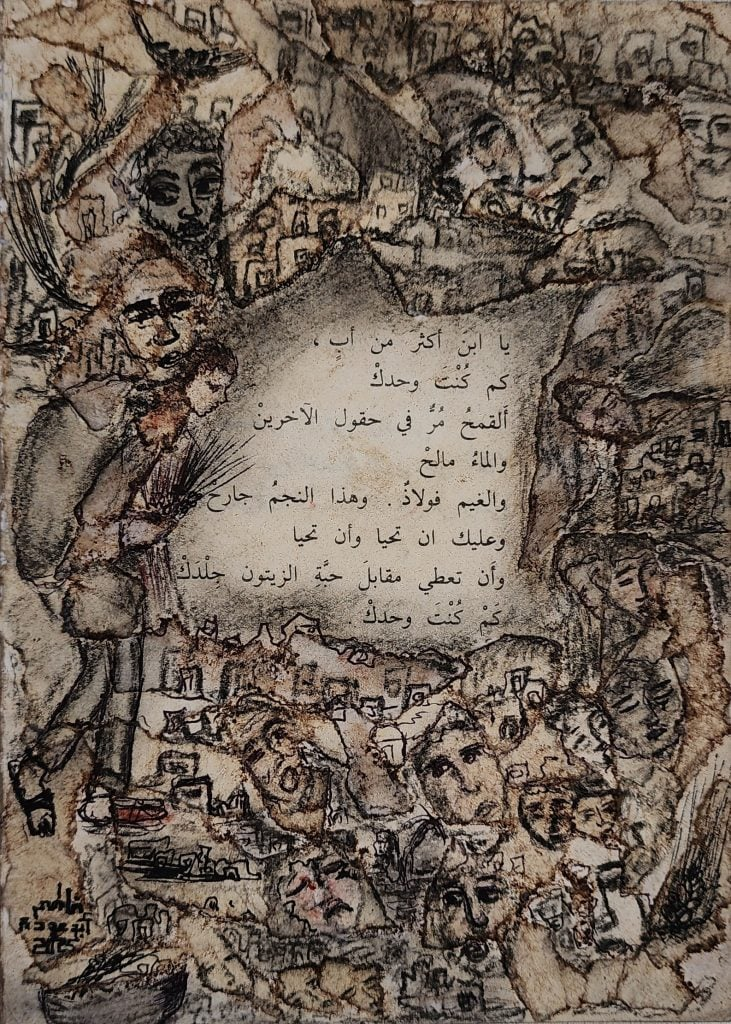 يا ابنَ أكثرَ من أبٍ ،
كم كُنْتَ وحدكْ
ألقمحُ مُرٌّ في حقول الآخرينْ
والماءُ مالحْ
والغيم فولاذٌ . وهذا النجمُ جارحْ
وعليك ان تحيا وأن تحيا
وأن تعطي مقابلَ حبَّةِ الزيتون جِلْدكْ
كَمْ كُنْتَ وحدكْ